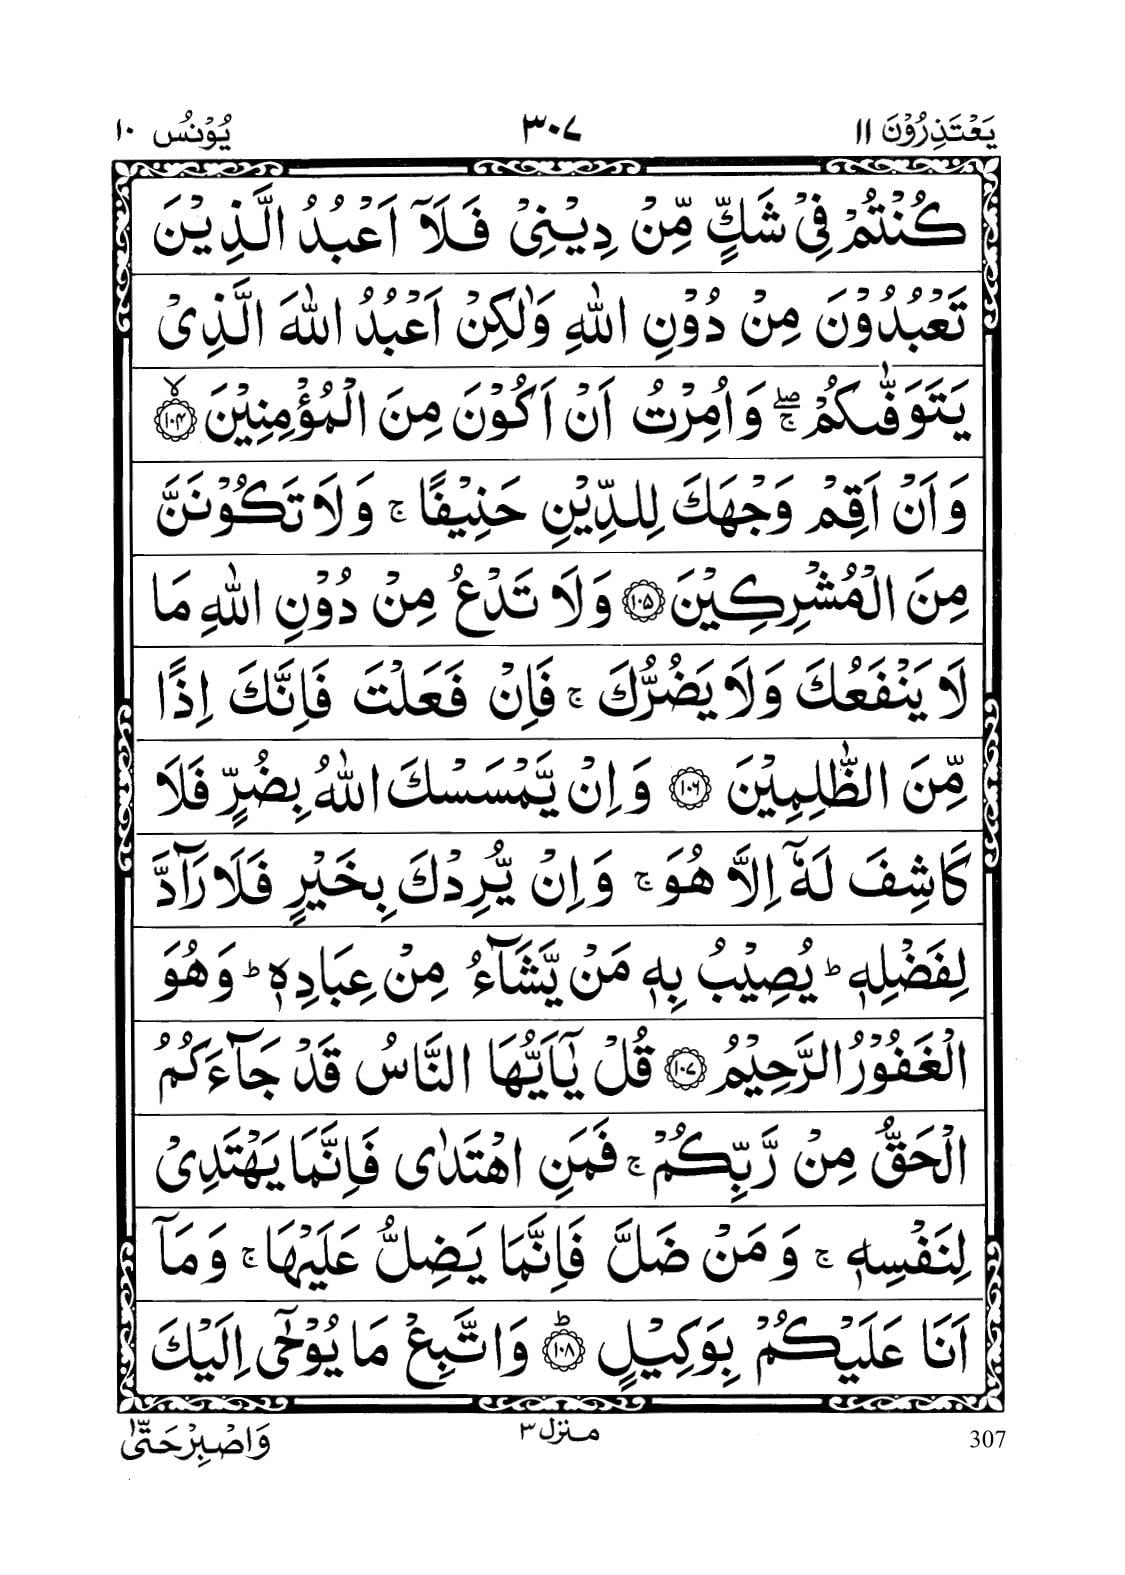 يَعْتَذِرُوْنَ ١١ ٣٠٧ يُوْنُس ١٠
كُنْتُمْ فِيْ شَكٍّ مِّنْ دِيْنِيْ فَلَآ اَعْبُدُ الَّذِيْنَ
تَعْبُدُوْنَ مِنْ دُوْنِ اللّٰهِ وَلٰكِنْ اَعْبُدُ اللّٰهَ الَّذِيْ
يَتَوَفّٰىكُمْ ۖۚ وَاُمِرْتُ اَنْ اَكُوْنَ مِنَ الْمُؤْمِنِيْنَ ۙ‏﴿۱۰۴﴾
وَاَنْ اَقِمْ وَجْهَكَ لِلدِّيْنِ حَنِيْفًا ۚ وَلَا تَكُوْنَنَّ
مِنَ الْمُشْرِكِيْنَ ﴿۱۰۵﴾ وَلَا تَدْعُ مِنْ دُوْنِ اللّٰهِ مَا
لَا يَنْفَعُكَ وَلَا يَضُرُّكَ ۚ فَاِنْ فَعَلْتَ فَاِنَّكَ اِذًا
مِّنَ الظّٰلِمِيْنَ ﴿۱۰۶﴾ وَاِنْ يَّمْسَسْكَ اللّٰهُ بِضُرٍّ فَلَا
كَاشِفَ لَهٗٓ اِلَّا هُوَ ۚ وَاِنْ يُّرِدْكَ بِخَيْرٍ فَلَا رَآدَّ
لِفَضْلِهٖ ؕ يُصِيْبُ بِهٖ مَنْ يَّشَآءُ مِنْ عِبَادِهٖ ؕ وَهُوَ
الْغَفُوْرُ الرَّحِيْمُ ﴿۱۰۷﴾ قُلْ يٰۤاَيُّهَا النَّاسُ قَدْ جَآءَكُمُ
الْحَقُّ مِنْ رَّبِّكُمْ ۚ فَمَنِ اهْتَدٰى فَاِنَّمَا يَهْتَدِيْ
لِنَفْسِهٖ ۚ وَمَنْ ضَلَّ فَاِنَّمَا يَضِلُّ عَلَيْهَا ۚ وَمَآ
اَنَا عَلَيْكُمْ بِوَكِيْلٍ ؕ﴿۱۰۸﴾ وَاتَّبِعْ مَا يُوْحٰٓى اِلَيْكَ
307 منزل ٣ وَاصْبِرْ حَتّٰى